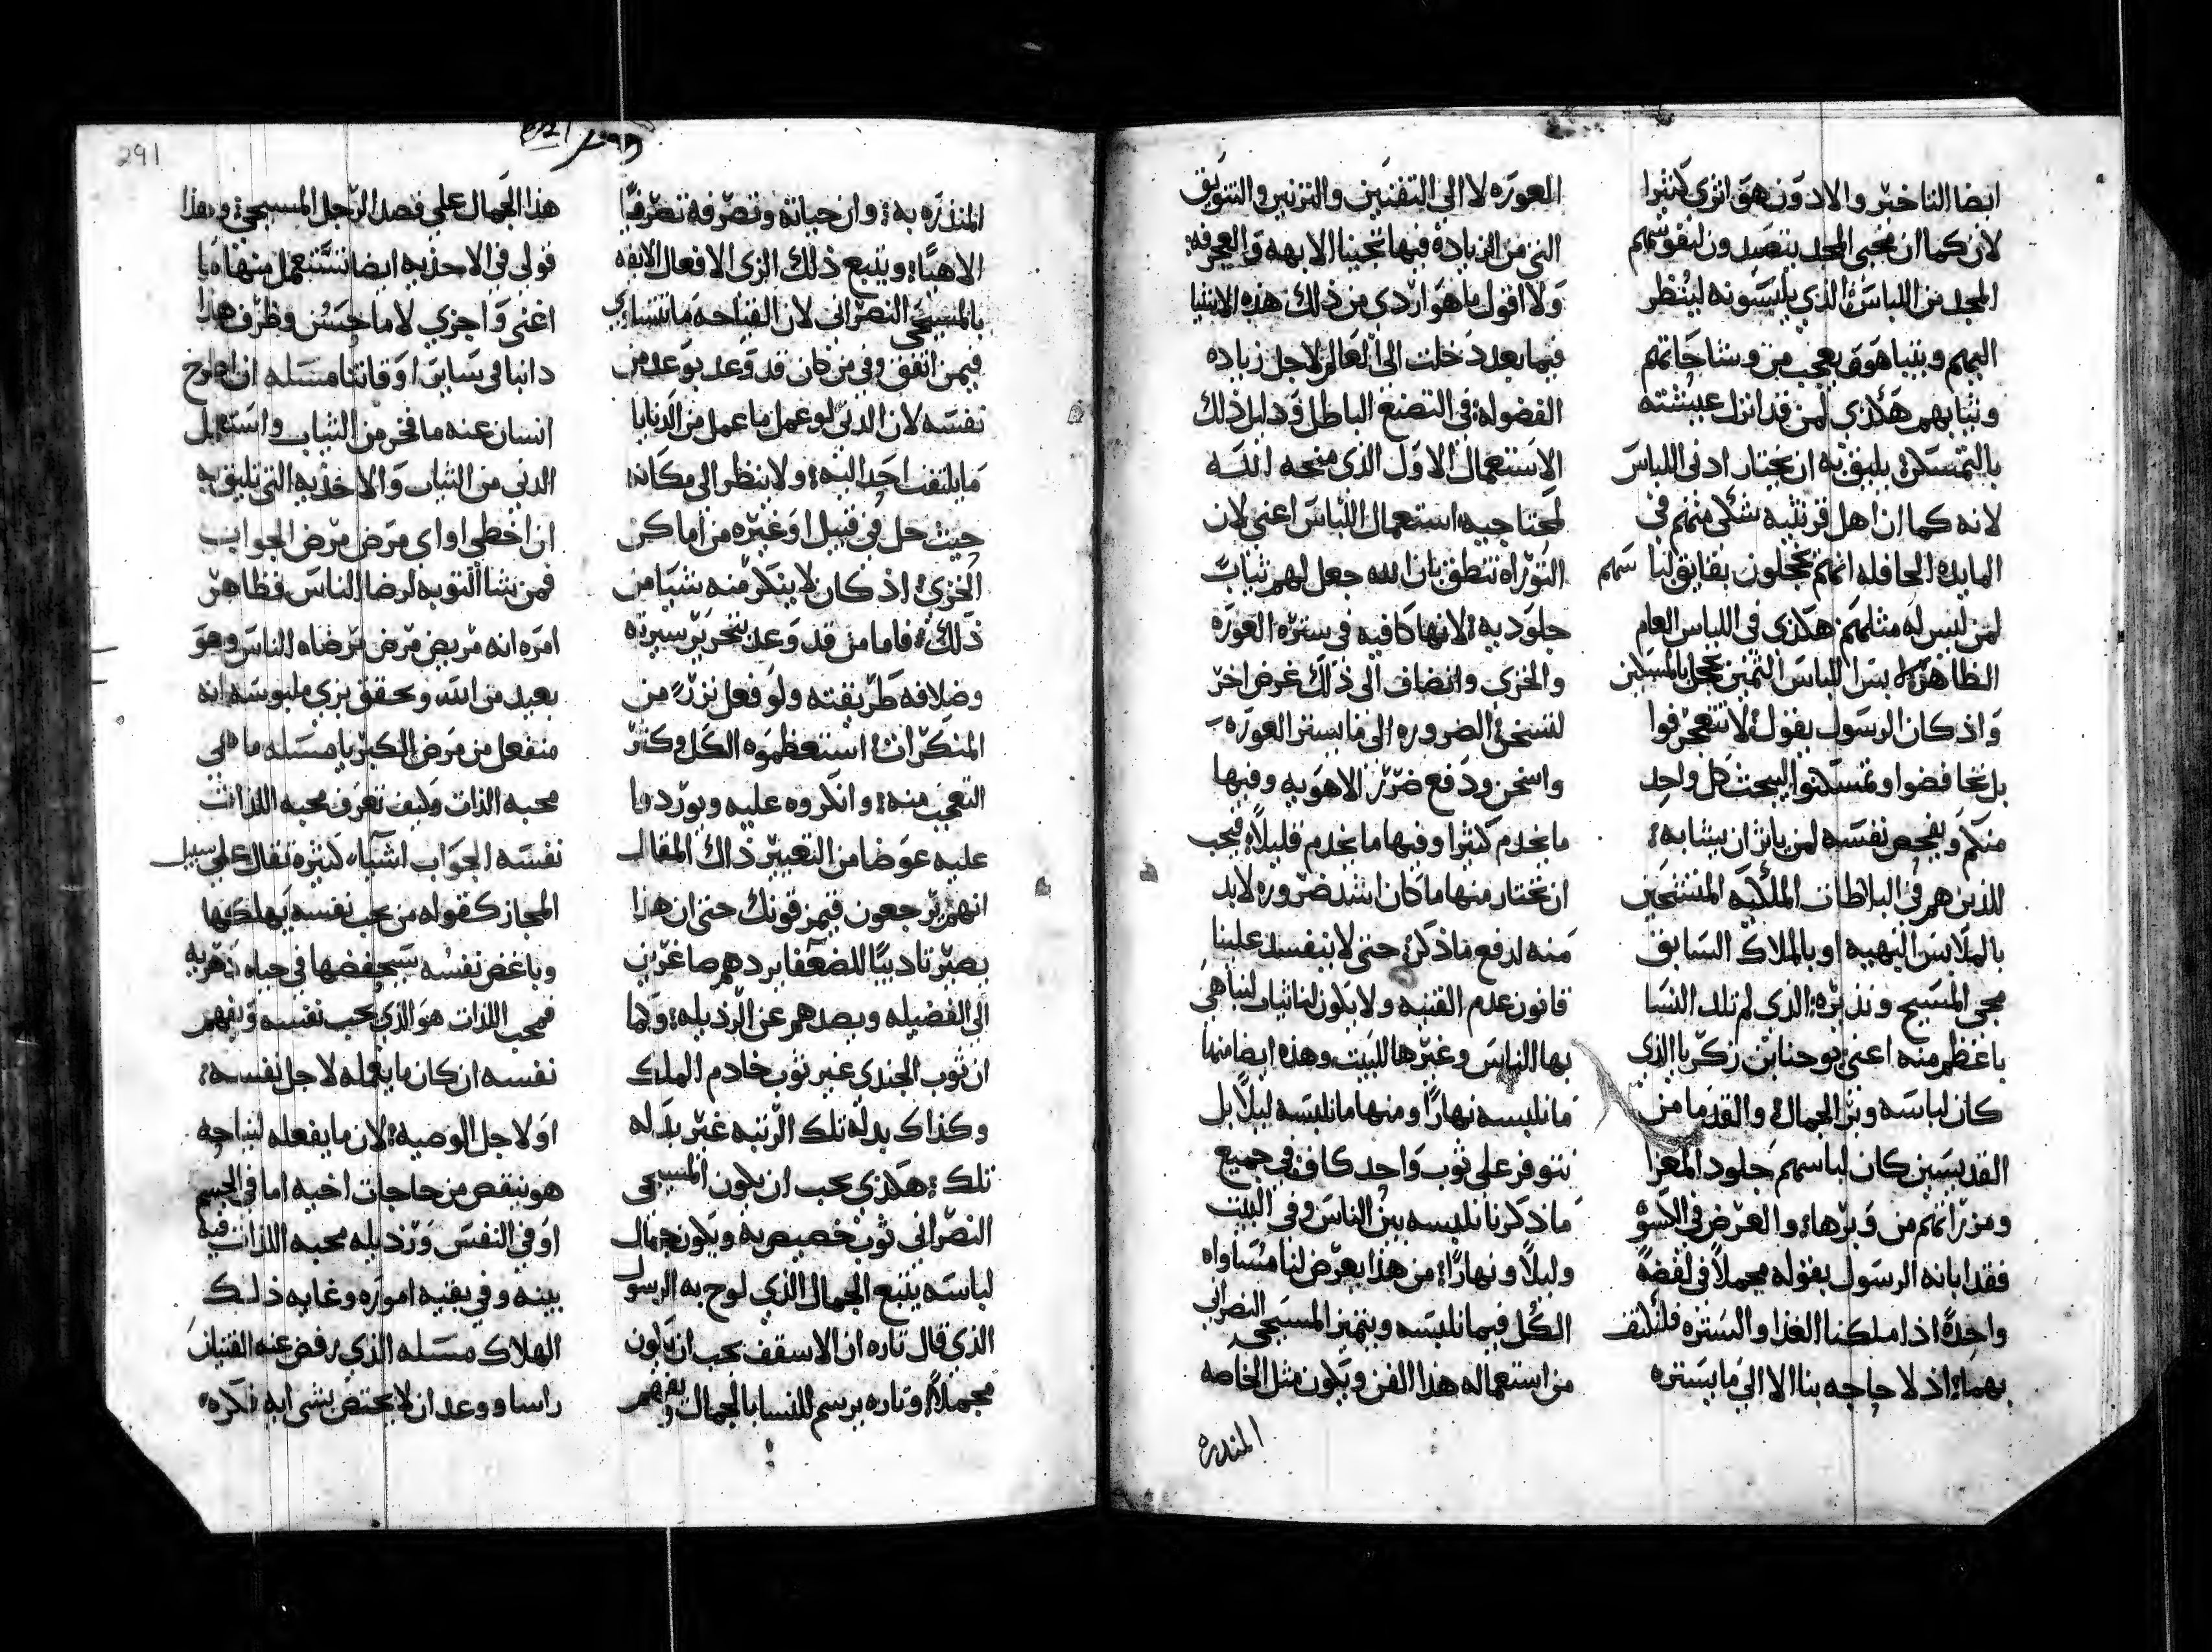 ايضا التاخير والادون هو اثري كثيرا
لان كما ان محبي المجد يتصيدون لنفوسهم
المجد من اللباس الذي يلبسونه لينظر
اليهم ويتباهوون بعجب من وشاحاتهم
وثيابهم هكذي لمن قد انزل عيشته
بالتمسكن يليق به ان يختار ادنى اللباس
لانه كما ان اهل قرنثيه شكى منهم في
المايده الحافله انهم يخجلون بفايق لباسهم
لمن ليس له مثلهم هكذي في اللباس العام
الظاهر لبس اللباس الثمين يخجل بالمسكين
واذ كان الرسول يقول لا تتعجرفوا
بل تخافضوا وتمسكنوا ليبحث كل واحد
منكم ويفحص نفسه لمن ياثر ان يشابه
للذين هم في البلاطات الملكيه المتشحين
بالملابس البهيه او بالملاك السابق
مجى المسيح ونذيره الذي لم تلد النسا
باعظم منه اعنى يوحنا بن زكريا الذي
كان لباسه وبر الجمال والقدما من
القديسين كان لباسهم جلود المعزا
ومزراتهم من وبرها والغرض في الكسوه
فقد ابانه الرسول بقوله مجملاً في لفضة
واحدة اذا ملكنا الغذا والستره فلنكتف
بهما اذ لا حاجه بنا الا الى ما يستره
العوره لا الى التفنين والتزيين والتزويق
التي من الزياده فيها تجينا الابهه والعجرفه
ولا اقول ما هو اردي من ذلك هذه الاشيا
فيما بعد دخلت الى العالم لاجل زياده
الفضوله في التصنع الباطل ودليل ذلك
الاستعمال الاول الذي منحه الله
لمحتاجيه استعمال اللباس اعني لان
التوراه تنطق بان الله جعل لهم ثياب
جلوديه لانها كافيه في ستره العوره
والخزي وانضاف الى ذلك غرض اخر
لتسخن الضروره الى ما يستر العوره
واسخن ودفع ضرر الاهويه وفيها
ما يخدم كثيرا وفيها ما يخدم قليلاً فيجب
ان نختار منها ما كان اشد ضروره لابد
منه لدفع ما ذكر حتى لا ينفسد علينا
قانون عدم القنيه ولا يكون لنا ثياب لنباهي
بها الناس وغيرها للبيت وهذه ايضا منها
ما نلبسه نهارًا ومنها ما نلبسه ليلاً بل
نتوفر على ثوب واحد كاف في جميع
ما ذكرنا نلبسه بين الناس وفي البيت
وليلاً ونهارًا من هذا يعرض لنا مساواه
الكل فيما نلبسه ويتميز المسيحي النصراني
من استعماله هذا الفن ويكون مثل الخاصه
المنذره
291
المنذره به وان حياته وتصرفه تصرفًا
الاهيًا ويتبع ذلك الزي الافعال اللايقه
بالمسيحي النصراني لان القباحه ما تتساوي
فيمن اتفق وفي من كان قد وعد بوعد من
نفسه لان الدني لو عمل ما عمل من الدنايا
ما يلتفت احد اليه ولا ينظر الى مكانه
حيث حل في قبيل او غيره من اماكن
الخزي اذ كان لا ينكر منه شيا من
ذلك فاما من قد وعد بتحرير سيرته
وصلافه طريقته ولو فعل نزرًا من
المنكرات استعظموه الكل وكثر
التعجب منه وانكروه عليه ويوردوا
عليه عوضا من التعيير ذاك المقال
انهم يرجعون فيمزقونك حتى ان هذا
يصير تاديبًا للضعفا يردهم صاغرين
الى الفضيله ويصدهم عن الرذيله وكما
ان ثوب الجندي غير ثوب خادم الملك
وكذاك بدلة تلك الرتبه غير بدله
تلك هكذي يجب ان يكون المسيحي
النصراني ثوب خصيص به ويكون جمال
لباسه يتبع الجمال الذي لوح به الرسول
الذي قال تاره ان الاسقف يجب ان يكون
مجملاً وتاره يرسم للنسا بالجمال ويفهم
هذا الجمال على قصد الرجل المسيحي وهذا
قولي في الاحذيه ايضا تستعمل منها ما
اغنى واجزي لا ما حسن وظرف هذا
دايبا في ساير اوقاتنا مسله ان اطرح
انسان عنه ما فخر من الثياب واستعمل
الدني من الثياب والاحذيه التي تليق به
ان اخطى او اي مرض مرض الجواب
فمن شا التوبه لرضا الناس فظاهر
امره انه مريض مرض مرضاه الناس وهو
بعيد من الله ويحقق بزي ملبوسه انه
منفعل من مرض الكبريا مسله ما هي
محبه الذات وكيف تعرف محبه اللذات
نفسه الجواب اشياء كثيره تقال على سبيل
المجاز كقوله من يحب نفسه يهلكها
وباغض نفسه سيحفضها في حياه دهريه
فمحب اللذات هو الذي يحب نفسه ويفهم
نفسه ان كان ما يعمله لاجل نفسه
او لاجل الوصيه لان ما يفعله لنياحه
هو ينقص من حاجات اخيه اما في الجسم
او في النفس ورذيله محبه اللذات فيه
بينه وفي بقيه اموره وغايه ذلك
الهلاك مسله الذي رفض عنه القنيات
راسا ووعد ان لا يختص بشي ايه فكره